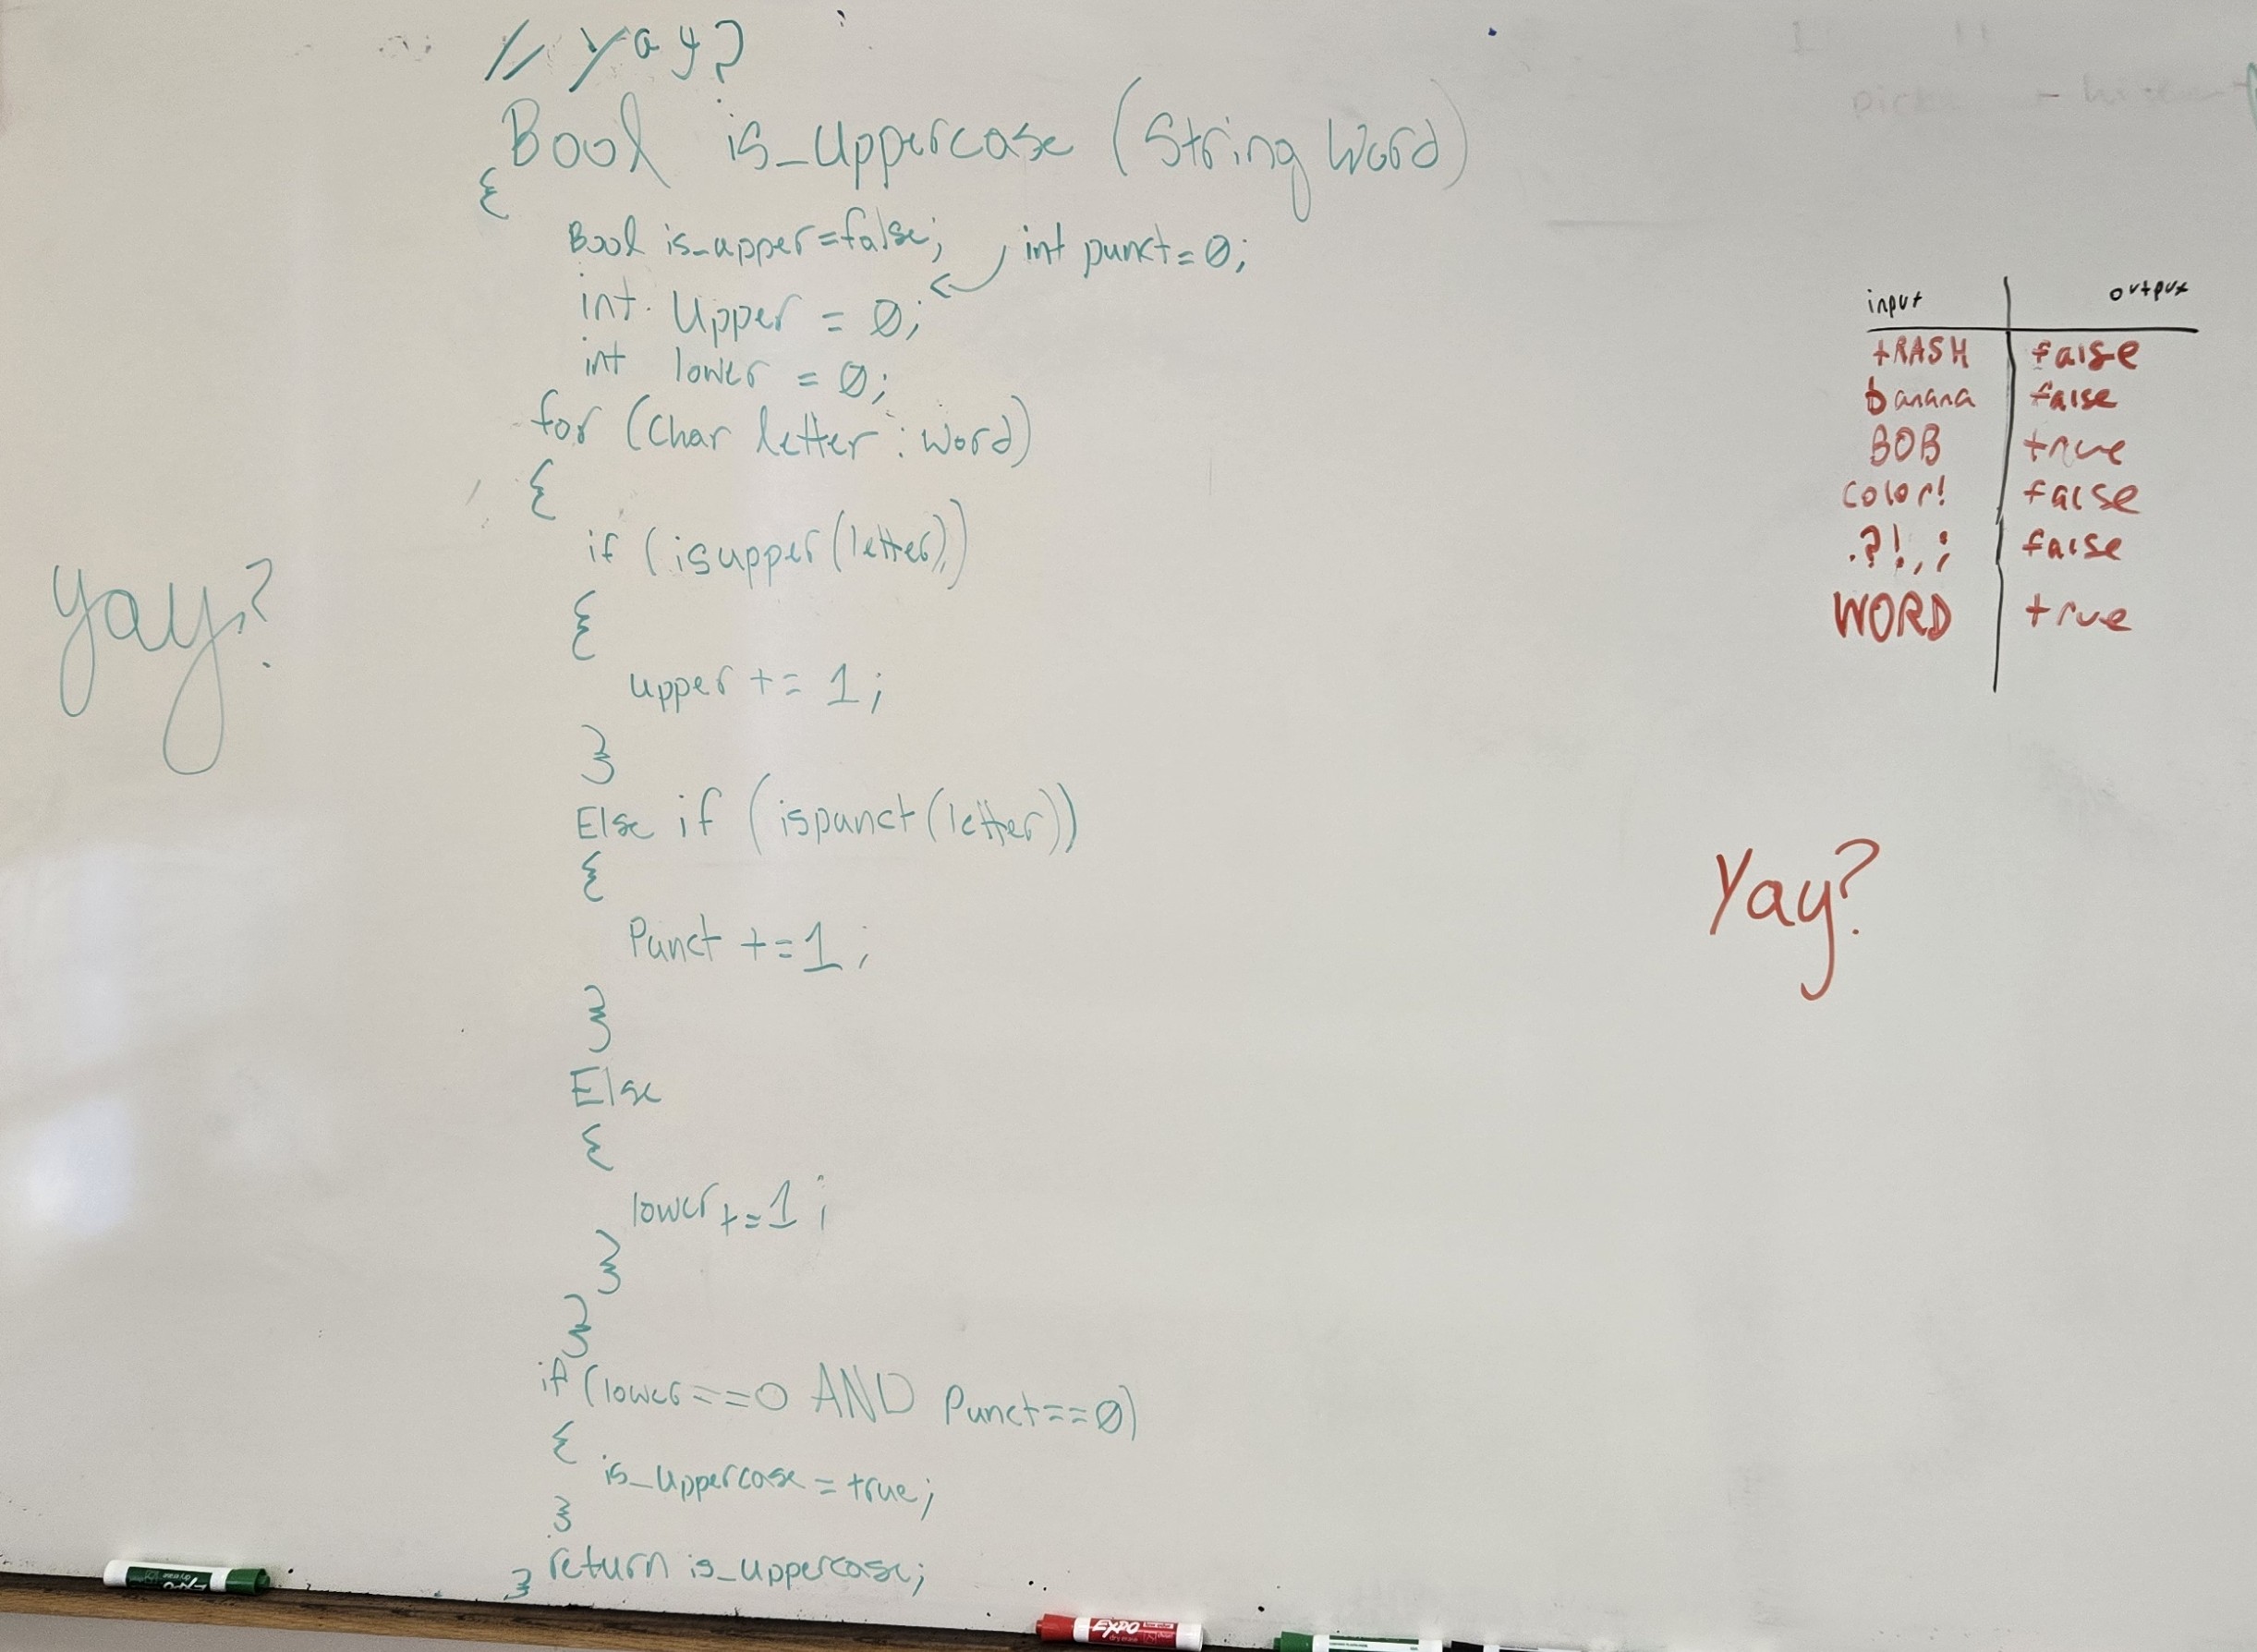 // yay?
Bool is_uppercase (String Word)
{
Bool is_upper=false; int punct=0;
int Upper = 0;
int lower = 0;
for (Char letter : word)
{
if (isupper(letter))
{
upper += 1;
}
Else if (ispunct(letter))
{
Punct +=1;
}
Else
{
lower +=1;
}
}
if (lower==0 AND Punct==0)
{
is_uppercase = true;
}
return is_uppercase;
}
yay?
input output
tRASH false
banana false
BOB true
color! false
.?!,; false
WORD true
Yay?
EXPO
EXPO